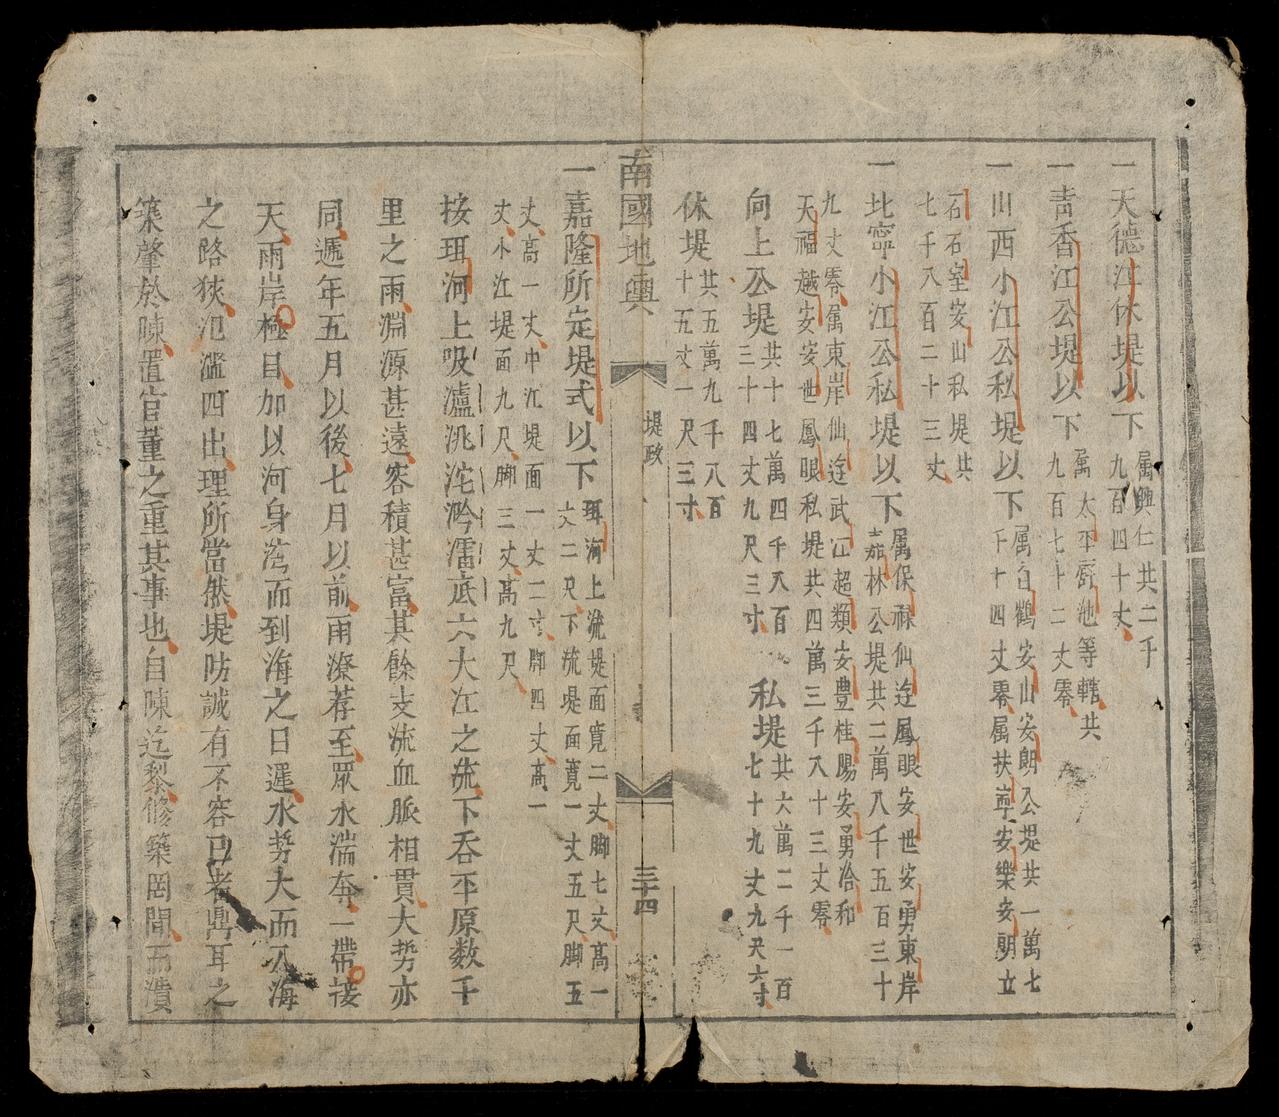 一天德江休堤以下 属興仁共二千
九百四十丈
一青香江公堤以下 属太平廚池等轄共
九百七十二丈零
一山西小江公私堤以下 属白鶴安山安朗公堤共一萬七
千十四丈零属扶寧安樂安朗立
石石室安山私堤共
七千八百二十三丈
一北寧小江公私堤以下 属保祿仙迻鳳眼安世安勇東岸
嘉林公堤共二萬八千五百三十
九丈零属東岸仙迻武江超類安豊桂陽安勇洽和
天福越安安世鳳眼私堤共四萬三千八十三丈零
向上公堤 共十七萬四千八百
三十四丈九尺三寸
私堤 共六萬二千一百
七十九丈九尺六寸
休堤 共五萬九千八百
十五丈一尺三寸
南國地輿 堤政 三十四
一嘉隆所定堤式以下 珥河上流堤面寬二丈脚七丈高一
丈二尺下流堤面寬一丈五尺脚五
丈高一丈中江堤面一丈二寸脚四丈高一
丈小江堤面九尺脚三丈高九尺
按珥河上吸瀘洮沱濔㵮底六大江之流下吞平原数千
里之雨淵源甚遠容積甚富其餘支流血脈相貫大势亦
同遞年五月以後七月以前雨潦荐至眾水湍奔一帶接
天雨岸極目加以河身湾而到海之日遲水势大而入海
之路狹氾濫四出理所當然堤防誠有不容已者鼎耳之
築肇於陳置官董之重其事也自陳迄黎修築罔間而潰